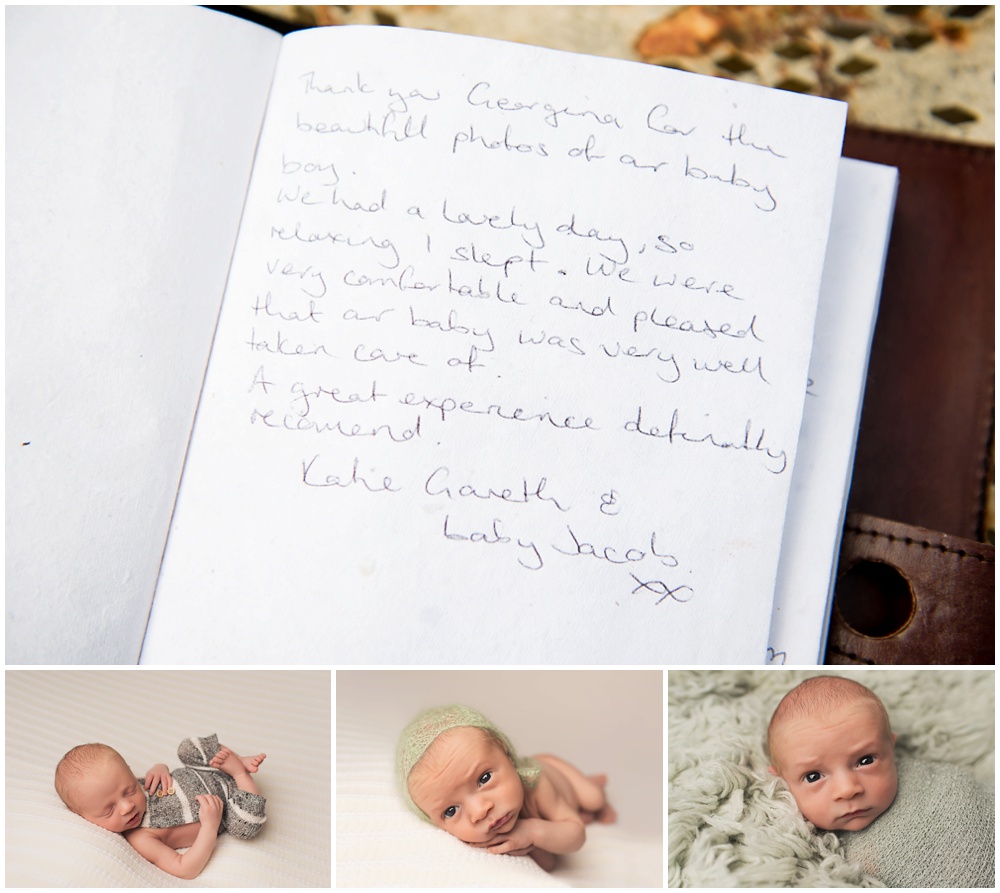 Thank you Georgina for the
beautifull photos of our baby
boy.
We had a lovely day, so
relaxing I slept. We were
very comfortable and pleased
that our baby was very well
taken care of.
A great experience definatly
recomend.
Katie Gareth &
baby Jacob.
xx